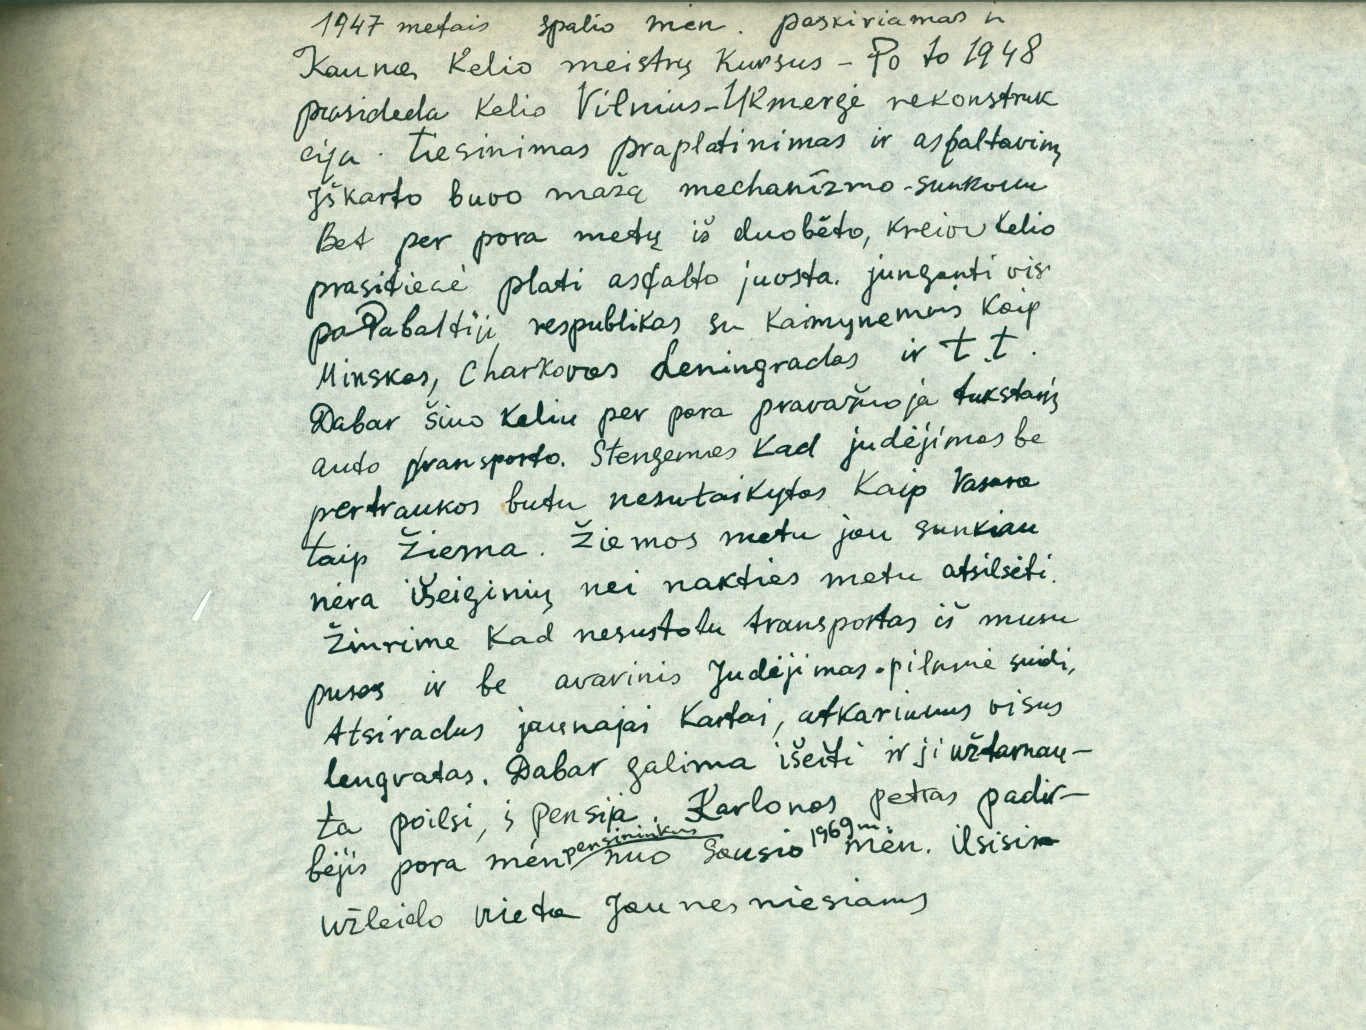 1947 metais spalio mėn. paskiriamas į
Kauną Kelio meistrų Kursus – Po to 1948
prasideda Kelio Vilnius–Ukmergė rekonstruk
cija. tiesinimas praplatinimas ir asfaltavimą
Iškarto buvo mažą mechanizmo-sunkvum
Bet per pora metų iš duobėto, kreivu kelio
prasitiesė plati asfalto juosta. jungenti vis
pa Pabaltijį respublikas su Kaimynemis Kaip
Minskas, Charkovas Leningradas ir t.t.
Dabar šiuo Keliu per pora pravažuoja tukstanį
auto transporto. Stengemes Kad judėjimas be
pertraukos butu nesutaikytas Kaip Vasara
taip Žiema. Žiemos metu jau sunkiau
nėra išeiginių nei nakties metu atsilsėti.
Žiurime Kad nesustotu transportas iš musu
puses ir be avarinis Judėjimas.
Atsiradus jaunajai Kartai, atkariumus visus
lengvatas. Dabar galima išeiti ir ji užtarnau–
ta poilsi, į pensija. Karlonas petras padir–
bėjis pora mėn pensininkus nuo Sausio 1969m. mėn. ilsisi
užleido vieta Jaunesniesiams